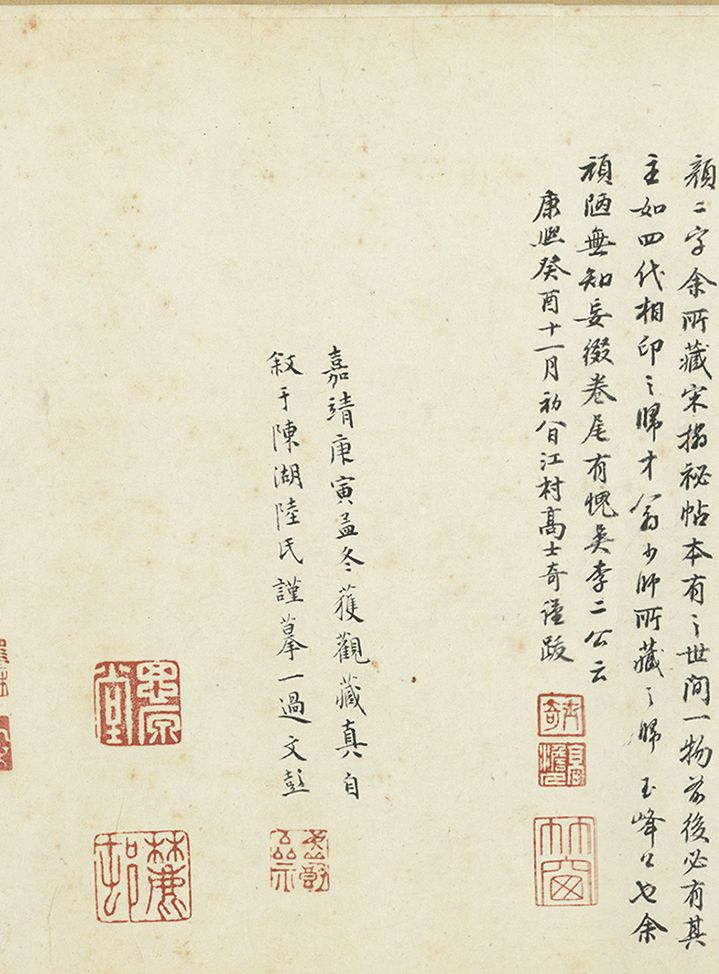 顏二字余所藏宋搨祕帖本有之世間一物前後必有其
主如四代相印之歸才翁少師所藏之歸玉峰公也余
頑陋無知妄綴卷尾有愧吳李二公云
康熙癸酉十一月初八日江村高士奇謹跋
嘉靖庚寅孟冬獲觀藏真自
敘于陳湖陸氏謹摹一過文彭
士奇
竹窗